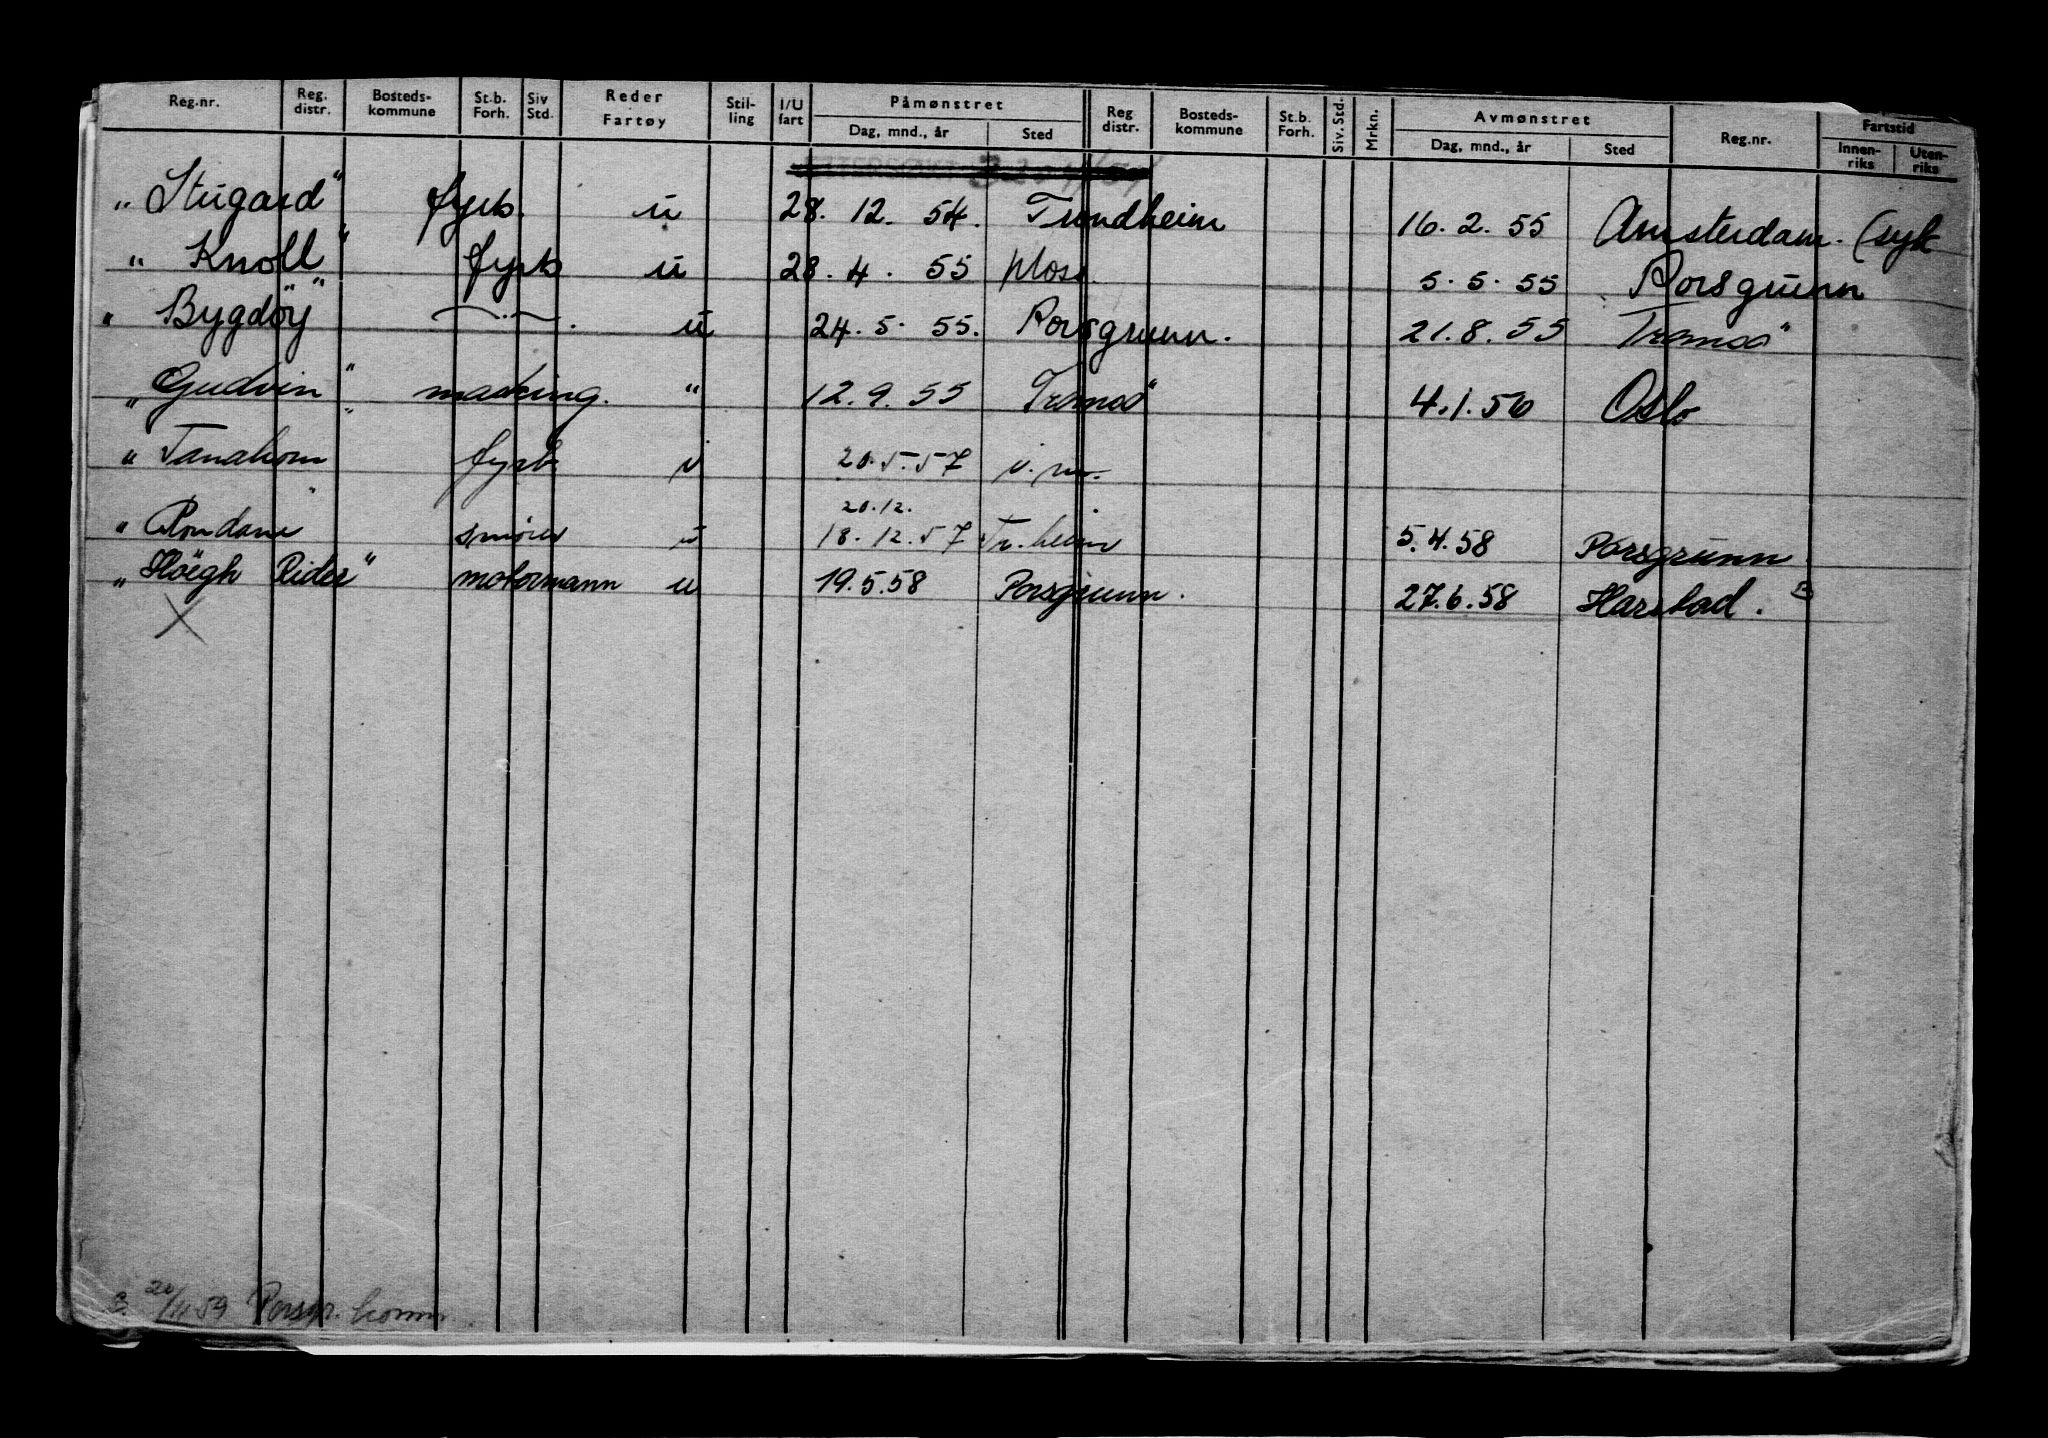 Reg.nr. Reg. distr. Bosteds-kommune St.b. Forh. Siv Std. Reder Fartøy Stil-ling I/U fart Påmønstret Dag, mnd., år Sted Reg distr. Bosteds-kommune St.b. Forh. Siv. Std. Mrkn. Avmønstret Dag, mnd., år Sted Reg.nr. Fartstid Innen-riks Uten-riks
"Stugard" fyrb. u 28. 12. 54. Trondheim 16. 2. 55 Amsterdam. (syk
"Knoll" fyrb u 28. 4. 55 Moss. 5. 5. 55 Porsgrunn
"Bygdøy" —"— . u 24. 5. 55. Porsgrunn. 21. 8. 55 Tromsö
"Gudvin" masking. " 12. 9. 55 Tromsö 4. 1. 56 Oslo
"Tanahorn fyrb i 20. 5. 57 i. m.
20. 12.
"Rondane" smører u 18. 12. 57 Tr.heim 5. 4. 58 Porsgrunn
"Höegh Rider" motormann u 19. 5. 58 Porsgrunn. 27. 6. 58 Harstad. B
X
B. 20/11 59 Porsgr. komm.